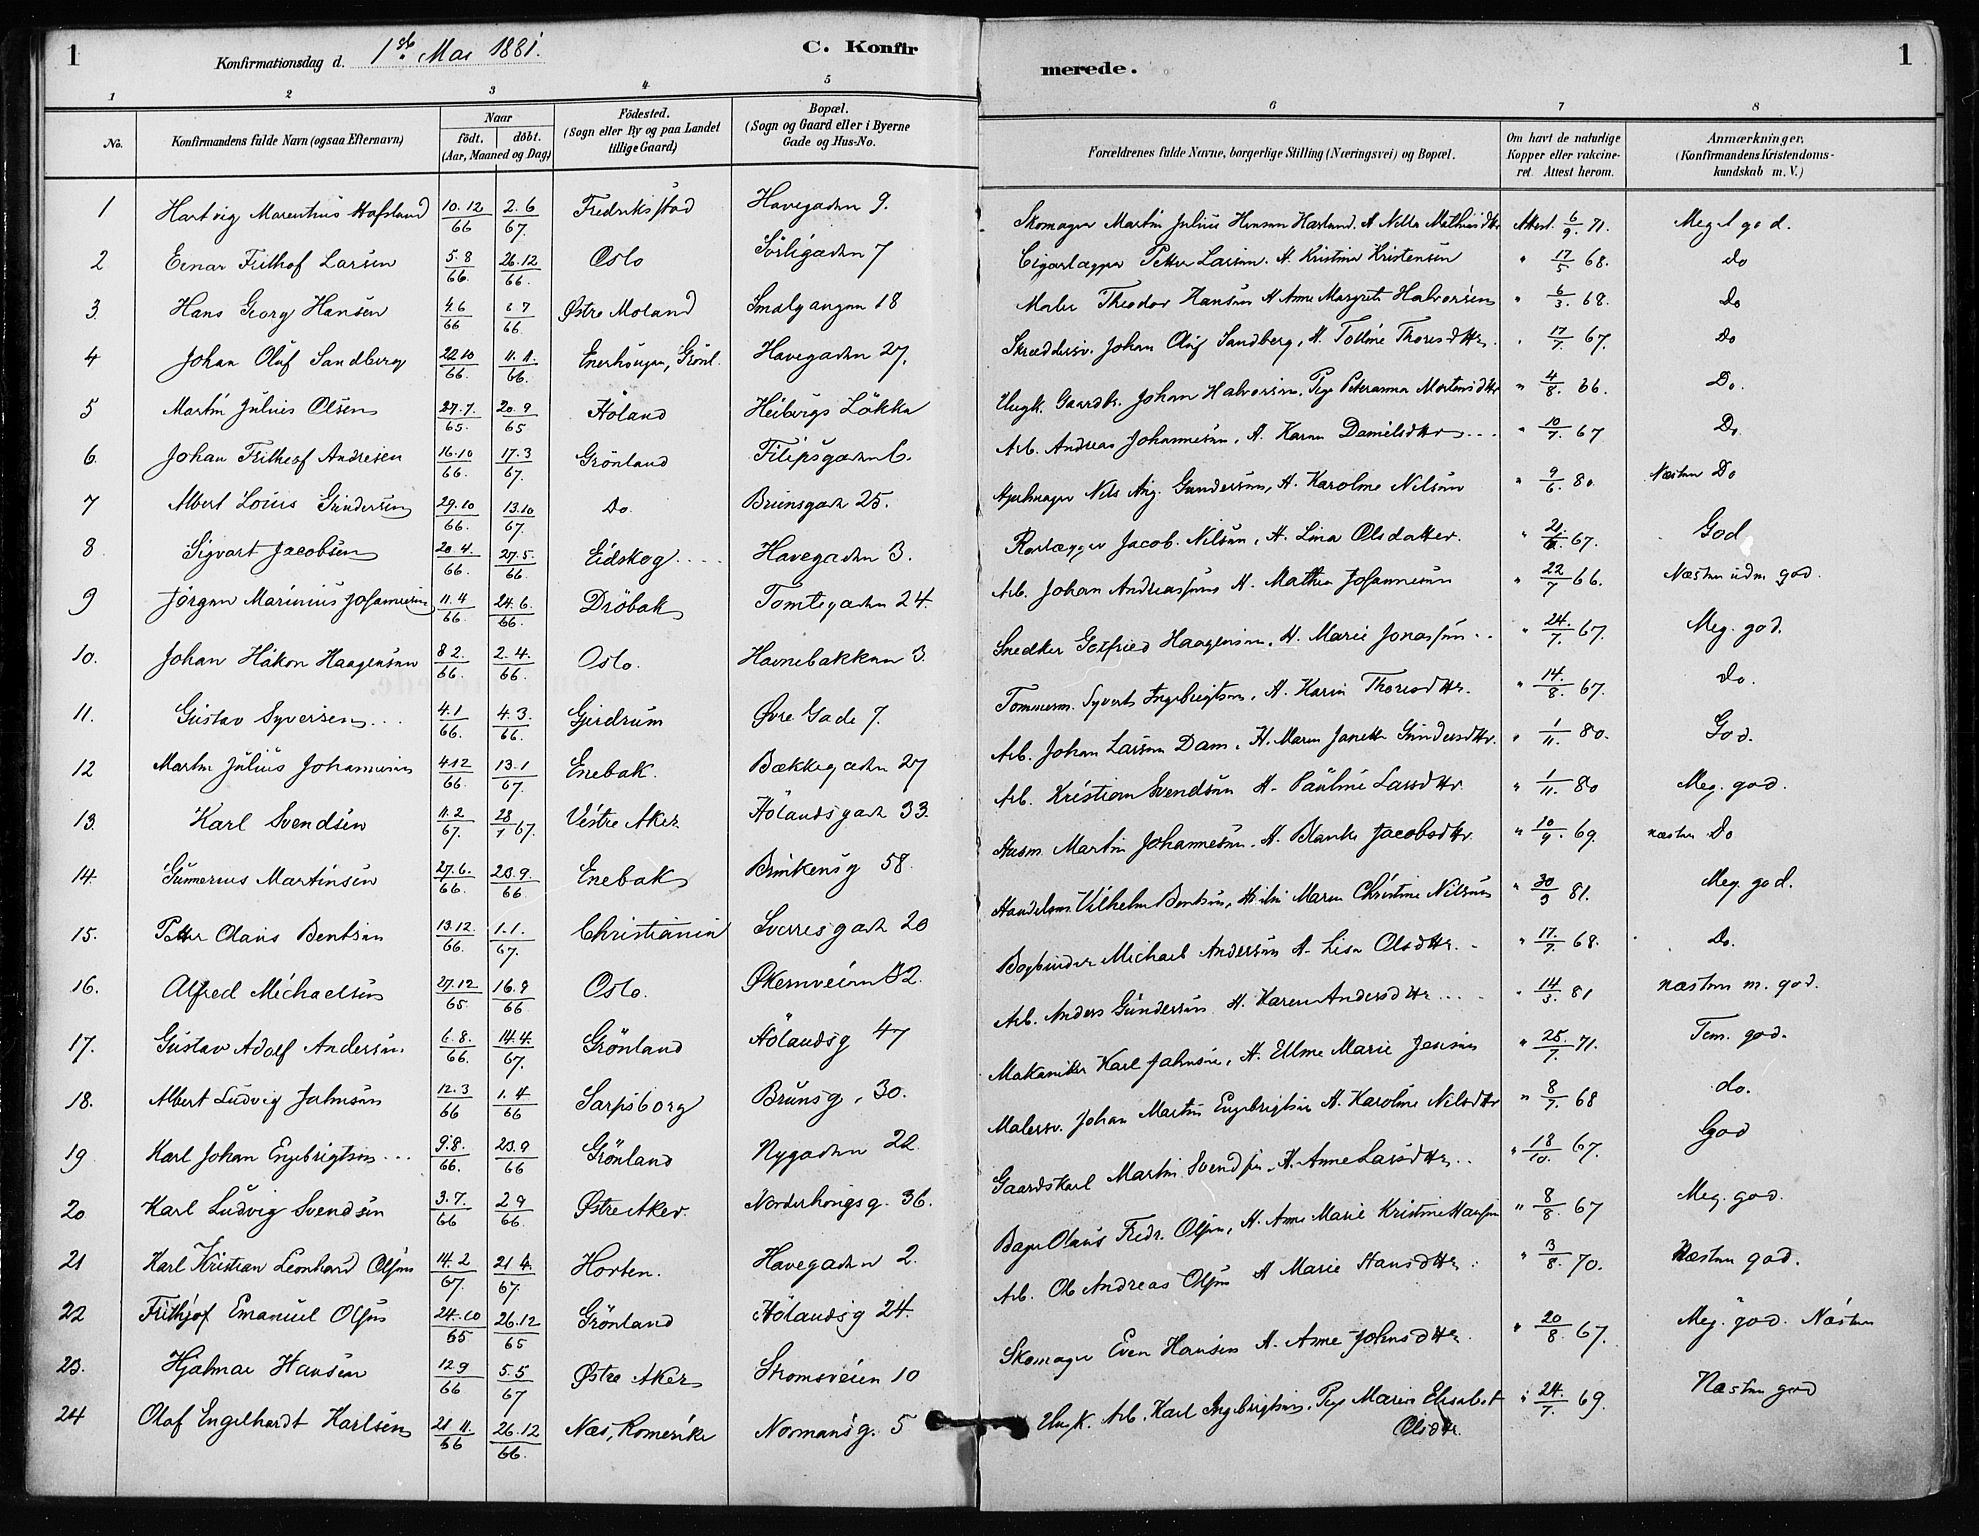 1
Konfirmationsdag d. 1ste Mai 1881.
C. Konfir
merede.
1
1 2 3 4 5 6 7 8
No.
Konfirmandens fulde Navn (ogsaa Efternavn)
Naar
födt. döbt.
(Aar, Maaned og Dag)
Födested.
(Sogn eller By og paa Landet
tillige Gaard)
Bopæl.
(Sogn og Gaard eller i Byerne
Gade og Hus-No.
Forældrenes fulde Navne, borgerlige Stilling (Næringsvei) og Bopæl.
Om havt de naturlige
Kopper eller vakcine-
ret. Attest herom.
Anmærkninger,
(Konfirmandens Kristendoms-
kundskab m. V.)
1 Hartvig Marentius Hafslund 10.12/66 2.6/67. Fredriksstad Havegaden 9. Skomager Martin Julius Hansen H. Attest. 6/9. 71. Meget god.
2 Einar Frithof Larsen 5.8/66. 26.12/66. Oslo Sörligaden 7 Petter Larsen. H. Kristine Kristensen " 17/5 68. do
3. Hans Georg Hansen 4.6/66 6.7/66. Østre Moland Smalgangen 18 Maler Theodor Hansen H. Anne Margrete Halvorsen " 6/3. 68. Do
4 Johan Oluf Sandberg 22.10/66. 11.11./66. Enerhougen, Grönl. Havegaden 27. Skræddersv. Johan Oluf Sandberg, H. Thoresdtr. " 17/7. 67. Do
5 Martin Julius Olsen 27.7./65. 20.9/65 Höland Heibergs Lökka Ungk. Gaardbr. Johan Halvorsen, Pige Peteranna Mortensdtr " 4/8. 66. Do.
6. Johan Frithof Andresen 16.10/66. 17.3/67. Grönland Filipsgaden 6. Arb. Andreas Johannesen, H. Karen Danielsdtr " 10/7. 67 Do.
7 Albert Louis Gundersen 29.10/66. 13.10/67. Do. Brunsgade 25. Nils Aug. Gundersen, H. Karoline Nilsen " 9/6. 80. Næsten Do
8. Sigvart Jacobsen 20.4./66. 27.5./66. Eidskog Havegaden 3. Jacob Nilsen, H. Lina Olsdatter. " 67. God
9 Jörgen Marinius Johannesen 11.4/66. 24.6./66. Dröbak Tomtegaden 24. Arb. Johan Andreassen H. Mathea Johannesen " 22/7 66. Næsten udm. god.
10. Johan Håkon Haagensen 8.2./66. 2.4./66. Oslo. Havnebakken 3. Snedker Gotfried Haagensen, H. Marie Jonassen " 24./7. 67. Meg. god.
11. Gustav Syversen 4.1/66. 4.3./66. Gjerdrum Øvre Gade 7. Tømmerm. Syvert Ingebrigtsen, H. Karin Thoresdtr. " 14./8. 67. do.
12 Martin Julius Johannesen 4.12/66. 13.1/67. Enebak. Bækkegaden 27 Arb. Johan Larsen Dam, H. Maren Janette Gundersdtr. " 1/11. 80. God.
13. Karl Svendsen 11.2/67. 28/7 67. Vestre Aker Hölandsgade 33. Arb. Kristian Svendsen H. Pauline Larsdtr " 1/11. 80 Meg. god.
14. Gunnerius Martinsen 27.6./66. 23.9./66 Enebak Brinkensg 58. Husm. Martin Johannesen. H. Blanka Jacobsdtr. " 10/9. 69. næsten Do
15. Petter Olaus Bentsen 13.12./66. 1.1./67. Christiania Sverresgade 20 Handelsm. Vilhelm Bentsen, Maren Christine Nilsen " 30/3 81. Meg. god.
16. Alfred Michaelsen 27.12/65 16.9/66 Oslo. Økernveien 32. Bogbinder Michael Andersen H. Lisa Olsdtr. " 17./7. 68. Do.
17. Gustav Adolf Andersen 6.8./66. 14.4./67. Grönland Hölandsg 47 Arb. Anders Gundersen H. Karen Andersdtr " 14/3. 81 næsten m. god.
18. Albert Ludvig Jahnsen 12.3/66 1.4/66 Sarpsborg Brunsg. 30. Mekaniker Karl Jahnsen, H. Marie Jensen " 25./7. 71. Tem. god.
19 Karl Johan Engebrigtsen 9.8./66. 23.9/66 Grönland Nygaden 22 Malersv. Johan Martin Engebrigtsen H. Karoline Nilsdtr " 8/7. 68 do.
20 Karl Ludvig Svendsen 3.7./66 2.9/66. Østre Aker. Norderhougsg. 36. Gaardskarl Martin Svendsen. H. Anne Larsdtr " 18/10. 67. God
21 Karl Kristian Leonhard Olsen 14.2/67. 21.4./67. Horten. Havegaden 2. Bager Olaus Fredr. Olsen, H. Anne Marie Kristine Hansen " 8/8. 67 Meg. god.
22 Frithjof Emanuel Olsen 24.10/65 26.12/65 Grönland Hölandsg 24. Arb. Ole Andreas Olsen H Marie Hansdtr. " 3/8. 70. Næsten god.
23. Hjalmar Hansen 12.9/66 5.5/67 Østre Aker Stromsveien 10 Skomager Even Hansen H. Anne Johnsdtr. " 20/8. 67. Meg. god. Næsten
24 Olaf Engelhardt Karlsen 21.11./66 26.12/66. Næs, Romerike Normansg. 5 Ungk. Arb. Karl Ingebrigtsen, Pige Maren Elisabet " 24./7. 69. Næsten god
Olsdtr.